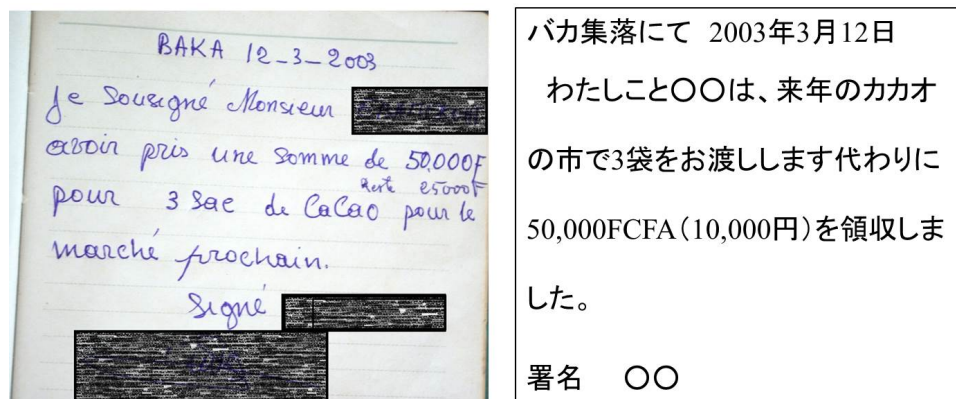 BAKA 12-3-2003
Je Sousigné Monsieur
avoir pris une Somme de 50.000F
reste 25000F
pour 3 Sac de CaCao pour le
marché prochain.
Signé
バカ集落にて 2003年3月12日
わたしこと〇〇は、来年のカカオ
の市で3袋をお渡しします代わりに
50,000FCFA(10,000円)を領収しま
した。
署名 〇〇